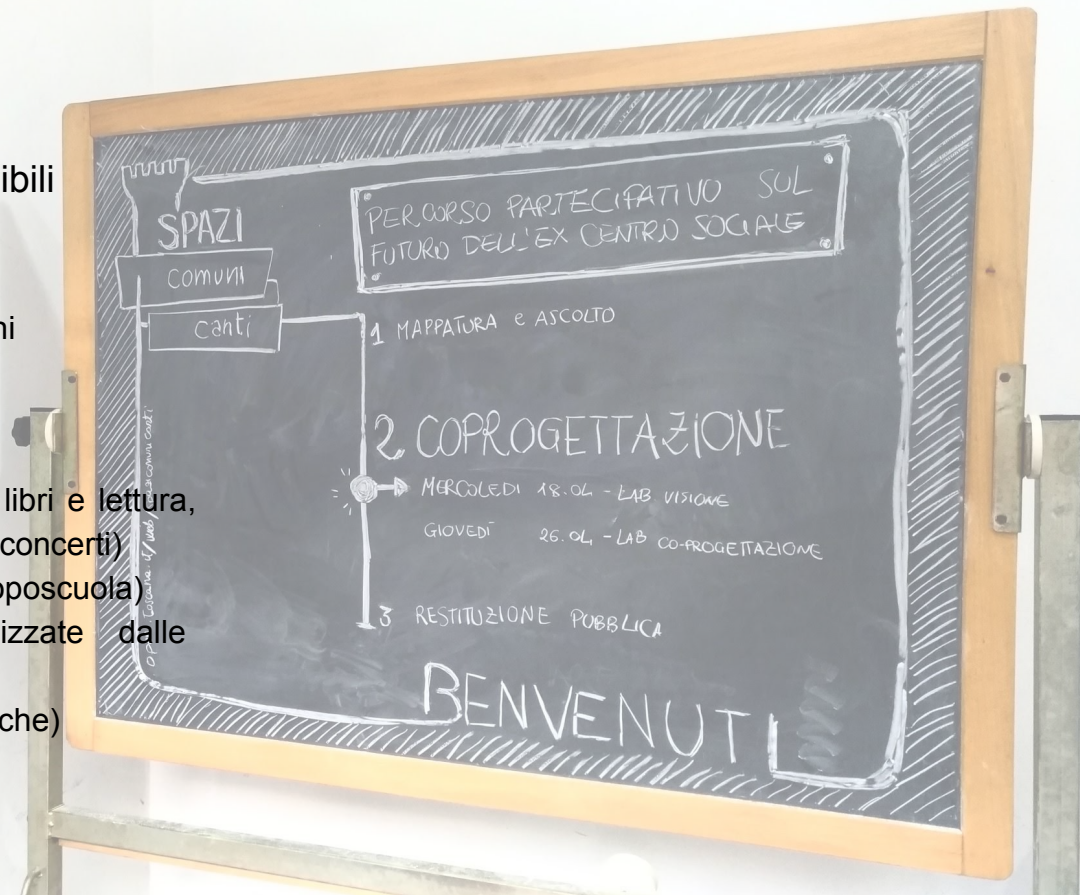 ibili
ni
libri e lettura,
concerti)
oposcuola)
izzate dalle
che)
SPAZI
comuni
canti
PERCORSO PARTECIPATIVO SUL
FUTURO DELL'EX CENTRO SOCIALE
1 MAPPATURA e ASCOLTO
2 COPROGETTAZIONE
MERCOLEDI 18.04 - LAB VISIONE
GIOVEDÌ 26.04 - LAB CO-PROGETTAZIONE
3 RESTITUZIONE PUBBLICA
BENVENUTI